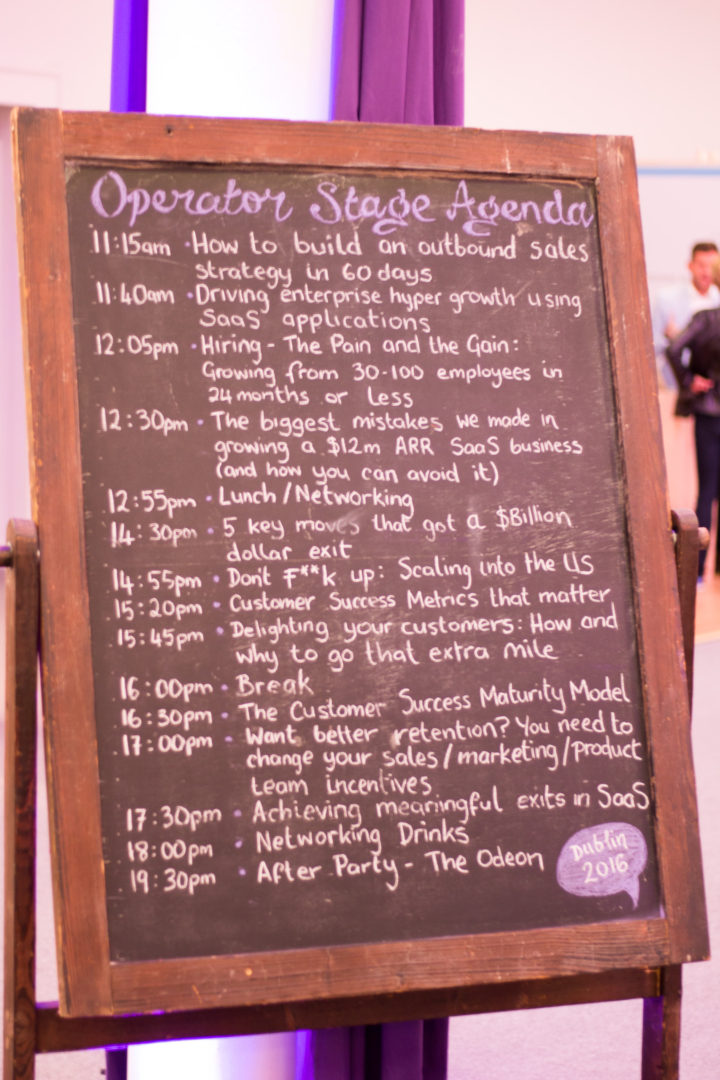 Operator Stage Agenda
11:15am · How to build an outbound sales
strategy in 60 days
11:40am · Driving enterprise hyper growth using
SaaS applications
12:05pm · Hiring - The Pain and the Gain:
Growing from 30-100 employees in
24 months or Less
12:30pm · The biggest mistakes we made in
growing a $12m ARR SaaS business
(and how you can avoid it)
12:55pm · Lunch / Networking
14:30pm · 5 key moves that got a $Billion
dollar exit
14:55pm · Don't F**k up: Scaling into the US
15:20pm · Customer Success Metrics that matter
15:45pm · Delighting your customers: How and
why to go that extra mile
16:00pm · Break
16:30pm · The Customer Success Maturity Model
17:00pm · Want better retention? You need to
change your sales/marketing/product
team incentives
17:30pm · Achieving meaningful exits in SaaS
18:00pm · Networking Drinks
19:30pm · After Party - The Odeon
Dublin
2016